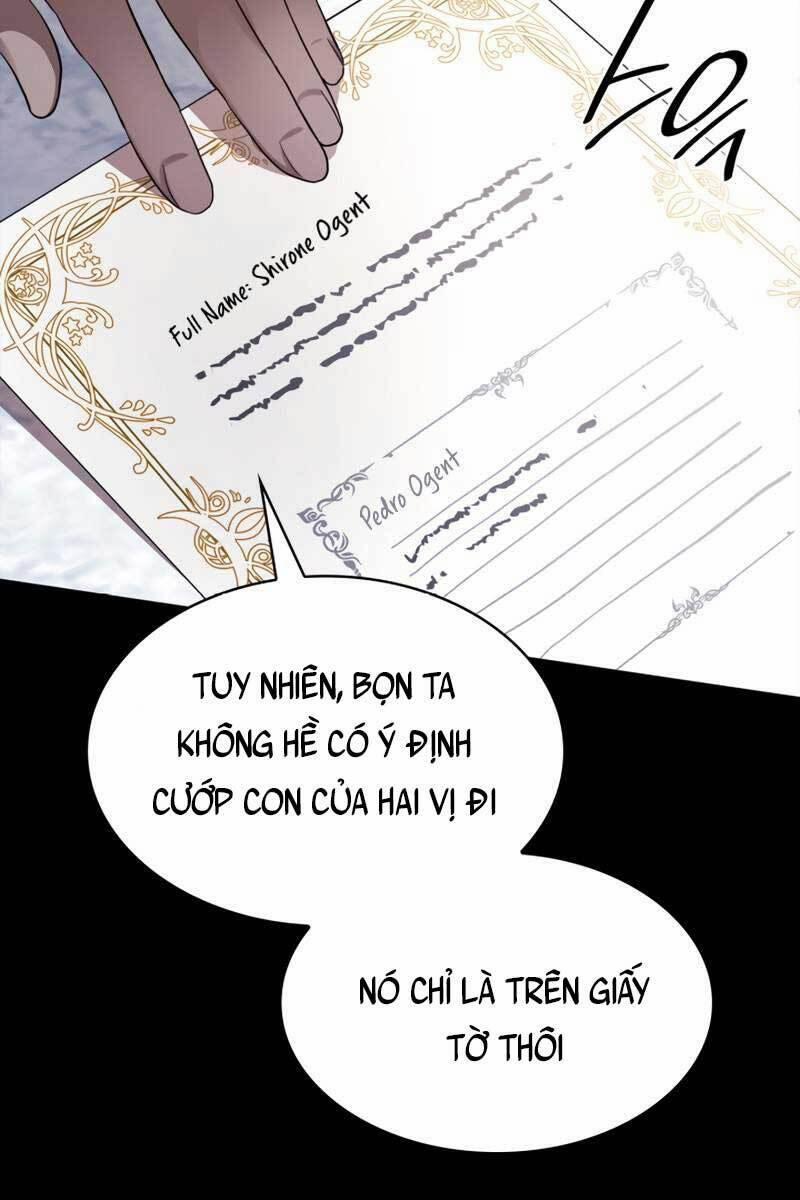 Full Name: Shirone Ogent
Pedro Ogent
TUY NHIÊN, BỌN TA
KHÔNG HỀ CÓ Ý ĐỊNH
CƯỚP CON CỦA HAI VỊ ĐI
NÓ CHỈ LÀ TRÊN GIẤY
TỜ THÔI